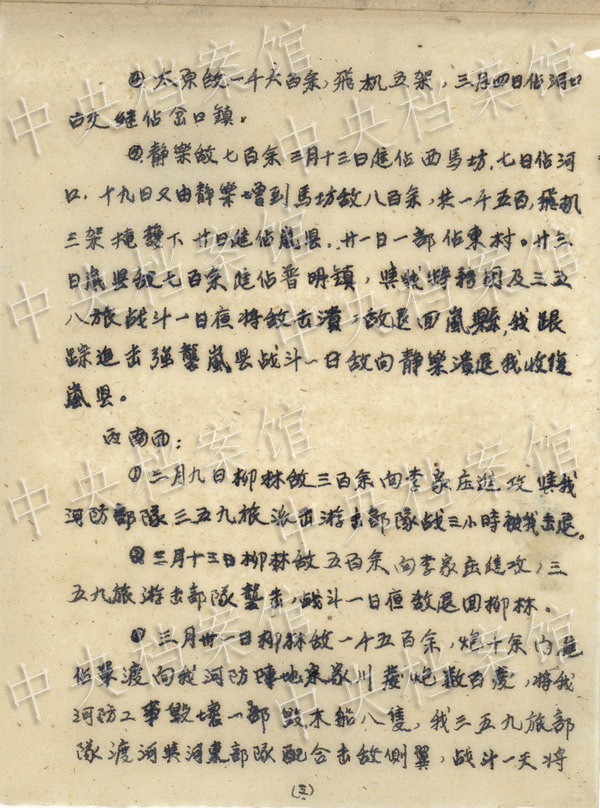 ㊃太原敌一千六百余，飛机五架，三月四日佔河口
古交継佔岔口鎮。
静樂敌七百余三月十三日進佔西馬坊，七日佔河
口，十九日又由静樂增到馬坊敌八百余，共一千五百，飛机
三架掩護下廿日進佔嵐县，廿一日一部佔東村。廿三
日嵐县敌七百余進佔普明鎮，與我特務团及三五
八旅战斗一日夜将敌击潰，敌退回嵐縣，我跟
踪進击強襲嵐县战斗一日敌向静樂潰退我收復
嵐县。
丙南面：
①二月九日柳林敌三百余向李家庄進攻與我
河防部隊三五九旅派击游击部隊战三小時被我击退。
②三月十三日柳林敌五百余向李家庄進攻，三
五九旅游击部隊襲击，战斗一日夜敌退回柳林。
三月廿一日柳林敌一千五百余，炮十余门進
佔軍渡向我河防陣地宋家川發炮数百發，将我
河防工事毀壞一部毀木船八隻，我三五九旅部
隊渡河與河東部隊配合击敌側翼，战斗一天将
(三)
中央档案馆